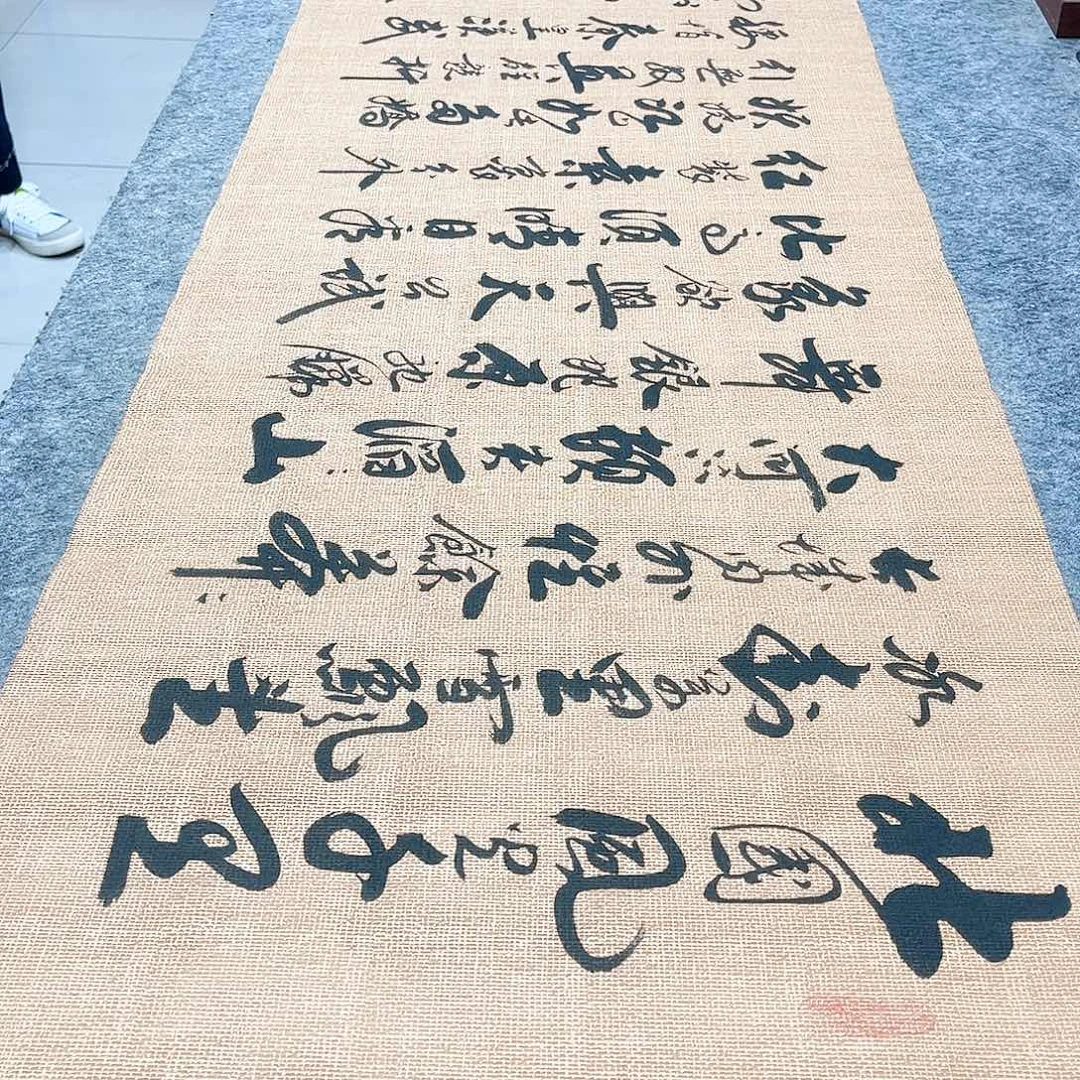 北國風光千里
冰封萬里雪飄望
長城內外惟餘莽莽
大河上下頓失滔滔山
舞銀蛇原馳蠟
象欲與天公試
比高須晴日看
紅裝素裹分外
妖嬈江山如此多嬌
引無數英雄競折
腰惜秦皇漢武